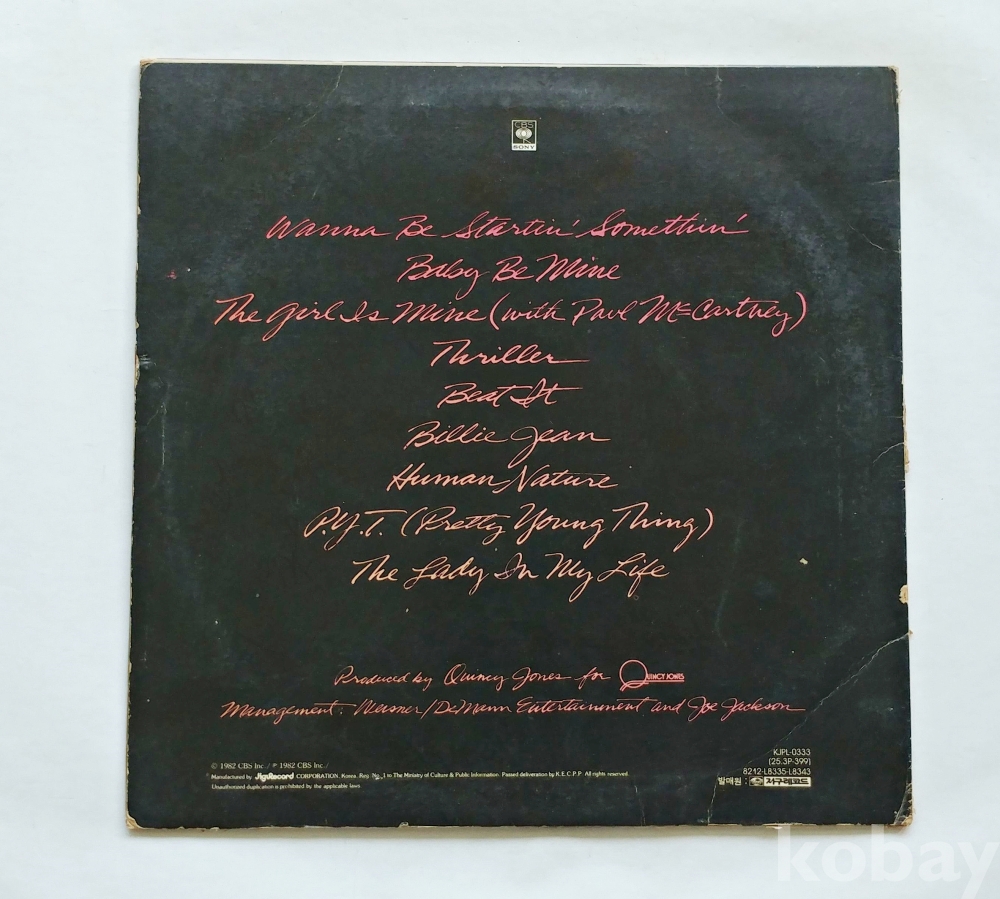 CBS
SONY
Wanna Be Startin' Somethin'
Baby Be Mine
The Girl Is Mine (with Paul McCartney)
Thriller
Beat It
Billie Jean
Human Nature
P.Y.T. (Pretty Young Thing)
The Lady In My Life
Produced by Quincy Jones for QUINCY JONES
Management: Weisner/DeMann Entertainment and Joe Jackson
© 1982 CBS Inc./ ℗ 1982 CBS Inc./
Manufactured by JiguRecord CORPORATION, Korea. Rep. No. 1 to The Ministry of Culture & Public Information. Passed deliveration by K.E.C.P.P. All rights reserved.
Unauthorized duplication is prohibited by the applicable laws.
KJPL-0333
(25.3P-399)
8212-L8335-L8343
발매원 : 지구레코드
kobay